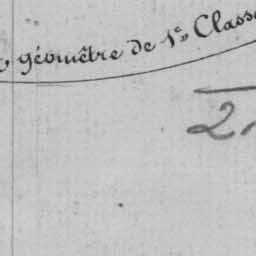 géomêtre de 1e Classe